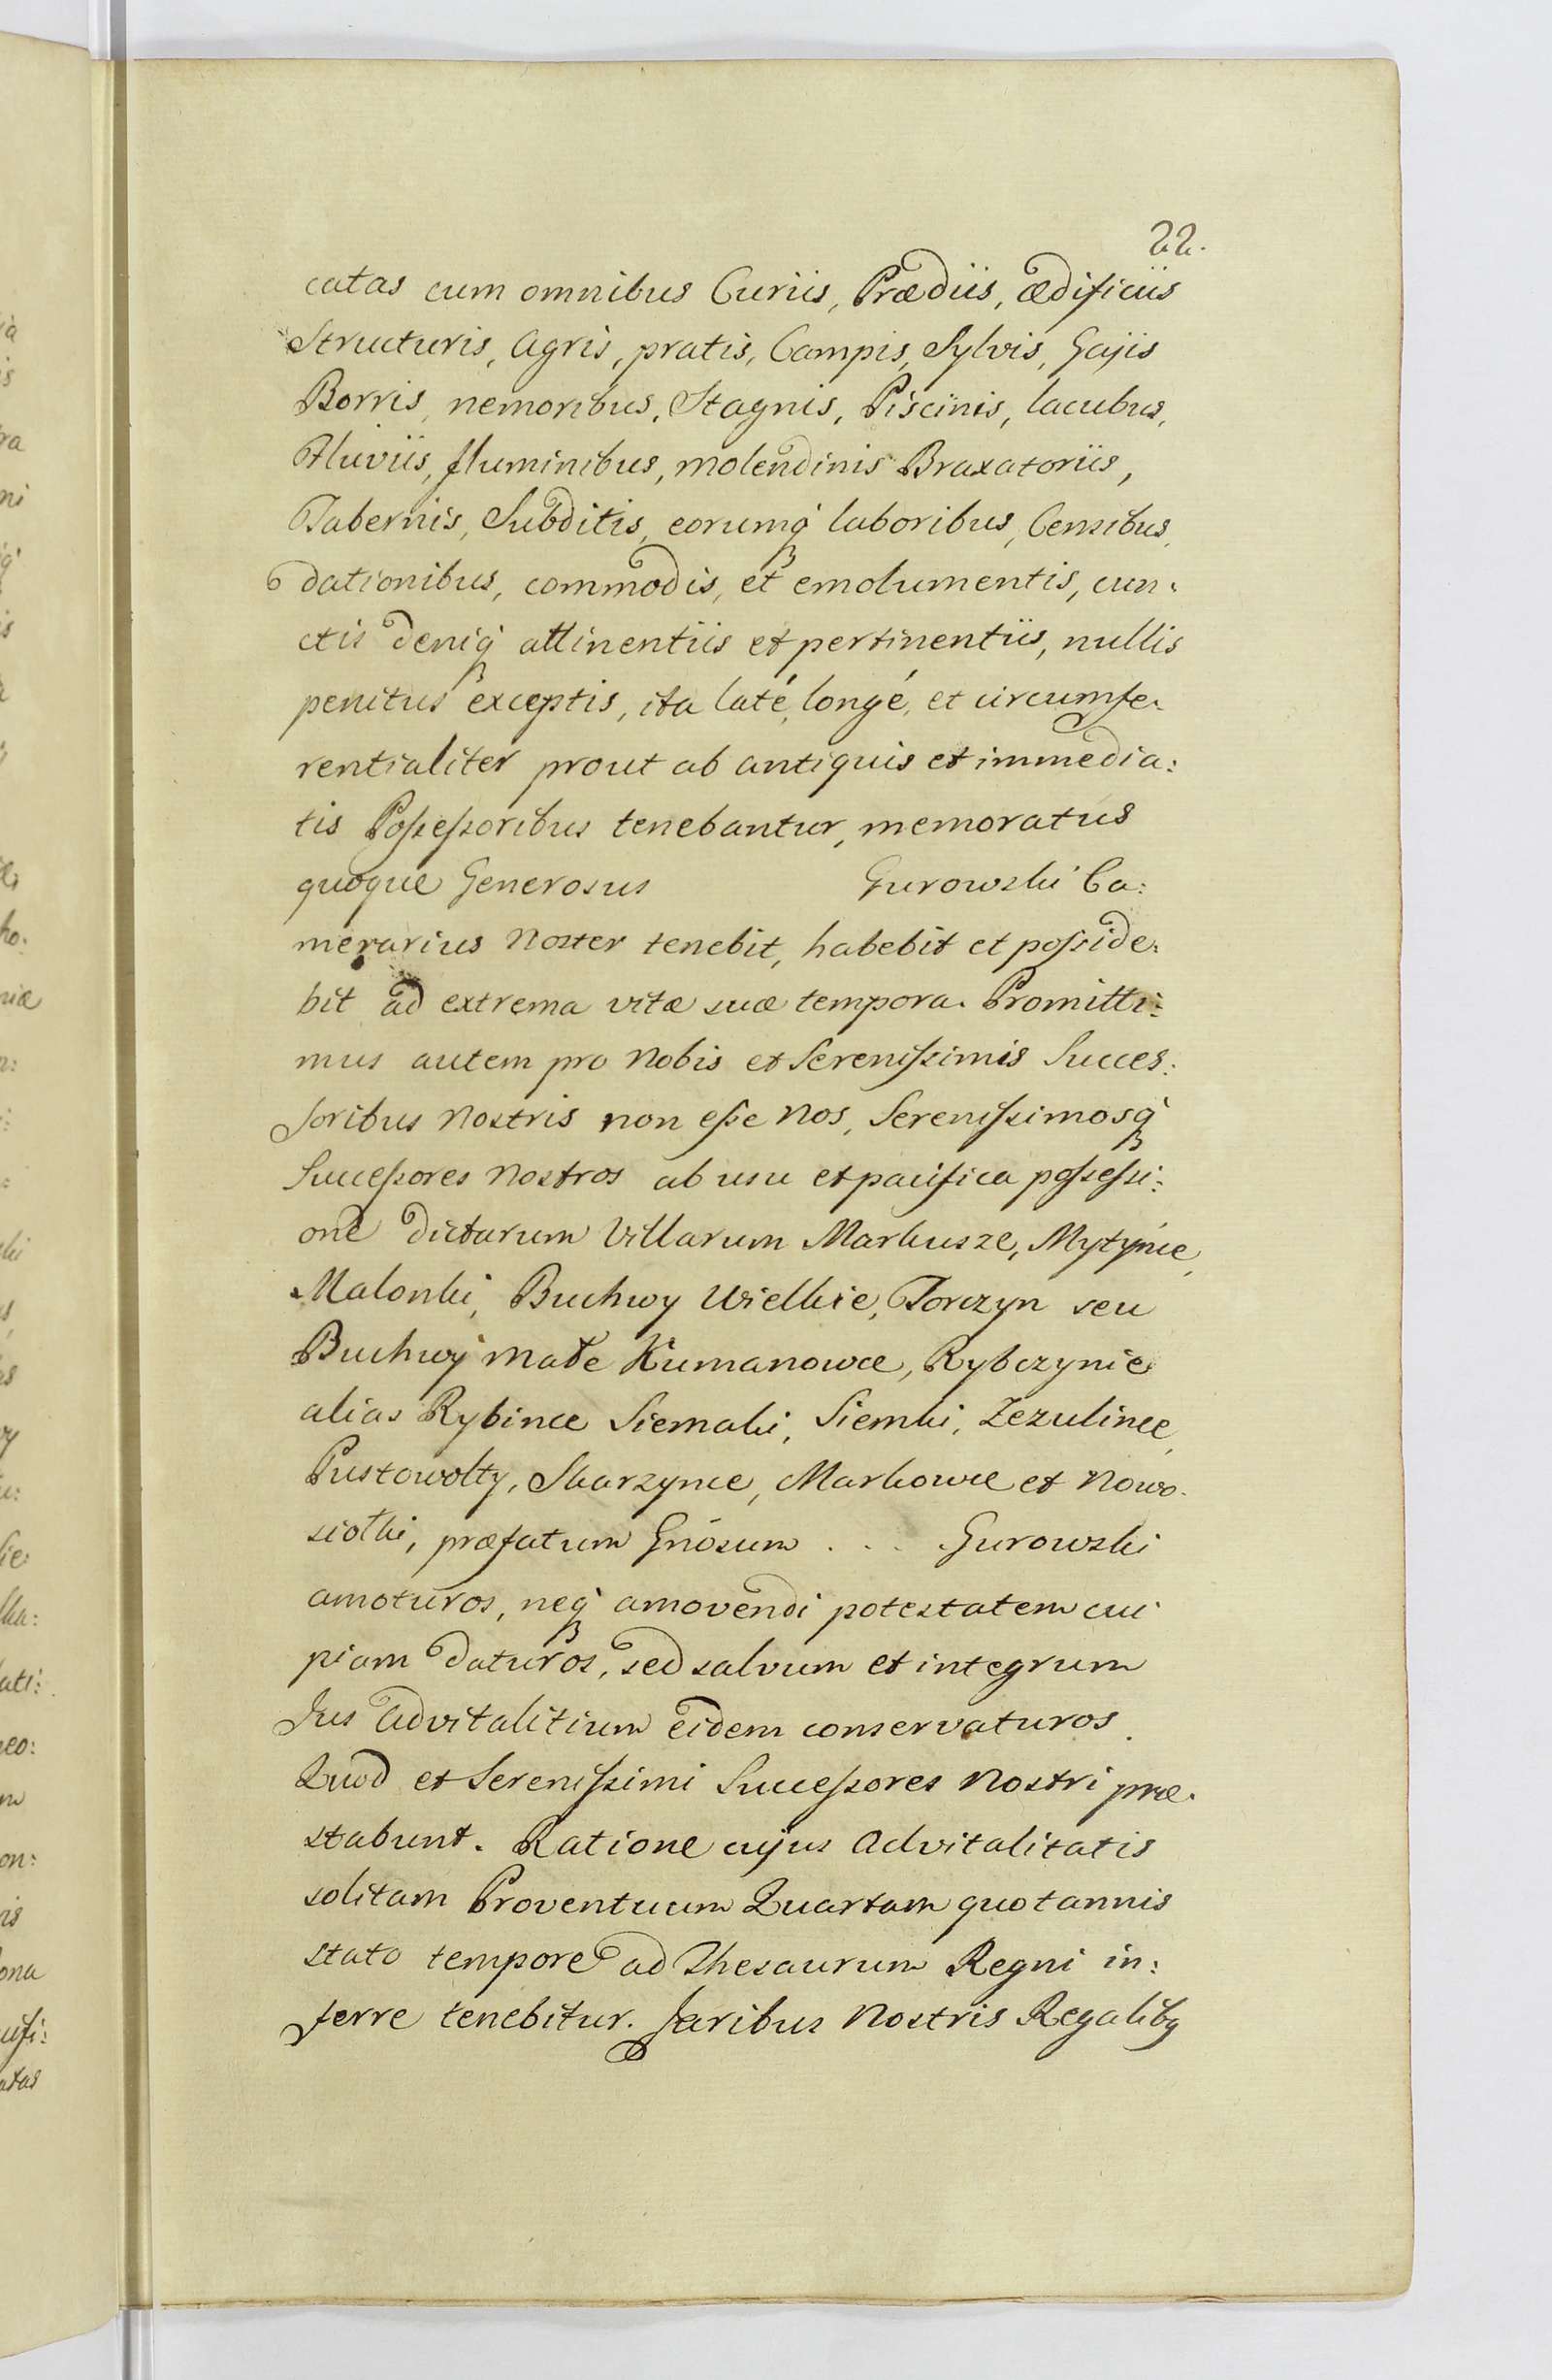 22.
catas cum omnibus Curiis, Prædiis, ædificiis
Structuris, Agris, pratis, Campis, Sylvis, Gajis
Borris, nemoribus, Stagnis, Piscinis, lacubus,
Fluviis, fluminibus, molendinis Braxatoriis,
Tabernis, Subditis, eorumq́ laboribus, Censibus,
dationibus, commodis, et emolumentis, cun-
ctis deniq́ attinentiis et pertinentiis, nullis
penitus exceptis, ita laté, longé, et circumfe-
rentialiter prout ab antiquis et immedia:
tis Possessoribus tenebantur, memoratus
quoque Generosus Gurowski Ca:
merarius Noster tenebit, habebit et posside:
bit ad extrema vitæ suæ tempora. Promitti:
mus autem pro Nobis et Serenissimis Succes:
soribus Nostris non esse Nos, Serenissimosq́
Successores Nostros ab usu et pacifica possessi:
one dictarum Villarum Markusze, Mytynce,
Malonki, Buchwy Wielkie, Torczyn seu
Buchwy Małe Kumanowce, Rybczynie
alias Rybince Siemaki, Siemki, Zezulince,
Pustowołty, Skarzynce, Markowce et Nowo-
siołki, præfatum Gnõsum . . . Gurowski
amoturos, neq́ amovendi potestatem cui
piam daturos, sed salvum et integrum
Jus Advitalitium eidem conservaturos.
Quod et Serenissimi Successores Nostri præ-
stabunt. Ratione cujus Advitalitatis
solitam Proventuum Quartam quotannis
stato tempore ad Thesaurum Regni in:
ferre tenebitur. Juribus Nostris Regalibq